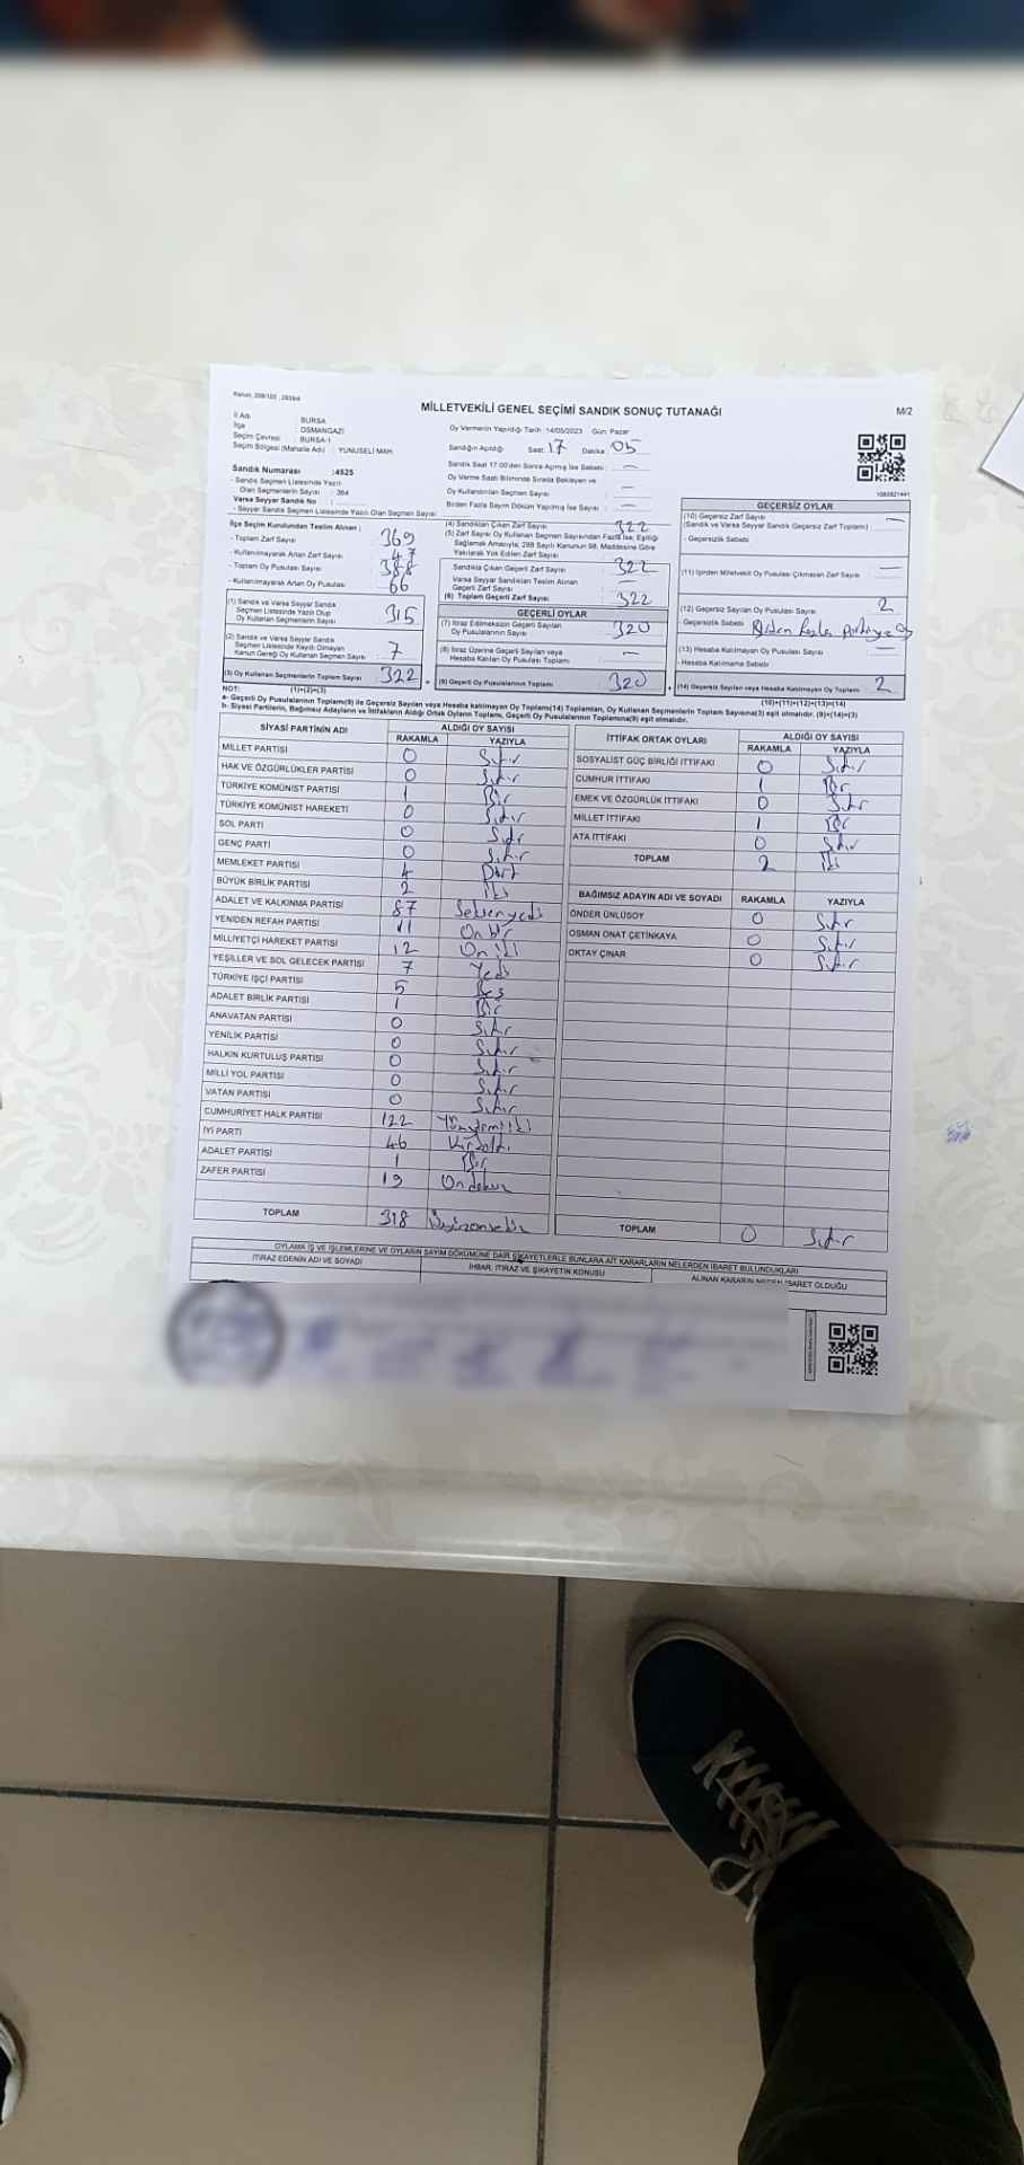 MİLLETVEKİLİ GENEL SEÇİMİ SANDIK SONUÇ TUTANAĞI
M/2
İl Adı : BURSA
İlçe : OSMANGAZİ
Seçim Çevresi : BURSA-1
Seçim Bölgesi (Mahalle Adı) : YUNUSELİ MAH.
Oy Vermenin Yapıldığı Tarih: 14/05/2023 Gün: Pazar
Sandığın Açıldığı Saat: 17 Dakika: 05
Sandık Saat 17:00'den Sonra Açılmış İse Sebebi : —
Oy Verme Saati Bitiminde Sırada Bekleyen ve
Oy Kullandırılan Seçmen Sayısı : —
Birden Fazla Sayım Döküm Yapılmış İse Sayısı : —
Sandık Numarası :4525
- Sandık Seçmen Listesinde Yazılı
Olan Seçmenlerin Sayısı : 364
Varsa Seyyar Sandık No :
- Seyyar Sandık Seçmen Listesinde Yazılı Olan Seçmen Sayısı :
İlçe Seçim Kurulundan Teslim Alınan ;
- Toplam Zarf Sayısı : 369
- Kullanılmayarak Artan Zarf Sayısı : 47
- Toplam Oy Pusulası Sayısı : 388
- Kullanılmayarak Artan Oy Pusulası : 66
(1) Sandık ve Varsa Seyyar Sandık
Seçmen Listesinde Yazılı Olup
Oy Kullanan Seçmenlerin Sayısı : 315
(2) Sandık ve Varsa Seyyar Sandık
Seçmen Listesinde Kayıtlı Olmayan
Kanun Gereği Oy Kullanan Seçmen Sayısı : 7
(3) Oy Kullanan Seçmenlerin Toplam Sayısı : 322
(1)+(2)=(3)
(4) Sandıktan Çıkan Zarf Sayısı : 322
(5) Zarf Sayısı Oy Kullanan Seçmen Sayısından Fazla İse, Eşitliği
Sağlamak Amacıyla, 298 Sayılı Kanunun 98. Maddesine Göre
Yakılarak Yok Edilen Zarf Sayısı :
Sandıkta Çıkan Geçerli Zarf Sayısı : 322
Varsa Seyyar Sandıktan Teslim Alınan
Geçerli Zarf Sayısı : —
(6) Toplam Geçerli Zarf Sayısı : 322
GEÇERLİ OYLAR
(7) İtiraz Edilmeksizin Geçerli Sayılan
Oy Pusulalarının Sayısı : 320
(8) İtiraz Üzerine Geçerli Sayılan veya
Hesaba Katılan Oy Pusulası Toplamı : —
(9) Geçerli Oy Pusulalarının Toplamı : 320
GEÇERSİZ OYLAR
(10) Geçersiz Zarf Sayısı : —
(Sandık ve Varsa Seyyar Sandık Geçersiz Zarf Toplamı)
- Geçersizlik Sebebi
(11) İçinden Milletvekili Oy Pusulası Çıkmayan Zarf Sayısı : —
(12) Geçersiz Sayılan Oy Pusulası Sayısı : 2
- Geçersizlik Sebebi : Birden fazla partiye oy
(13) Hesaba Katılmayan Oy Pusulası Sayısı : —
- Hesaba Katılmama Sebebi
(14) Geçersiz Sayılan veya Hesaba Katılmayan Oy Toplamı : 2
(10)+(11)+(12)+(13)=(14)
NOT:
a- Geçerli Oy Pusulalarının Toplamı(9) ile Geçersiz Sayılan veya Hesaba Katılmayan Oy Toplamı(14) Toplamları, Oy Kullanan Seçmenlerin Toplam Sayısına(3) eşit olmalıdır. (9)+(14)=(3)
b- Siyasi Partilerin, Bağımsız Adayların ve İttifakların Aldığı Ortak Oyların Toplamı, Geçerli Oy Pusulalarının Toplamına(9) eşit olmalıdır.
SİYASİ PARTİNİN ADI ALDIĞI OY SAYISI
RAKAMLA YAZIYLA
MİLLET PARTİSİ 0 Sıfır
HAK VE ÖZGÜRLÜKLER PARTİSİ 0 Sıfır
TÜRKİYE KOMÜNİST PARTİSİ 1 Bir
TÜRKİYE KOMÜNİST HAREKETİ 0 Sıfır
SOL PARTİ 0 Sıfır
GENÇ PARTİ 0 Sıfır
MEMLEKET PARTİSİ 4 Dört
BÜYÜK BİRLİK PARTİSİ 2 İki
ADALET VE KALKINMA PARTİSİ 87 Seksenyedi
YENİDEN REFAH PARTİSİ 11 Onbir
MİLLİYETÇİ HAREKET PARTİSİ 12 Oniki
YEŞİLLER VE SOL GELECEK PARTİSİ 7 Yedi
TÜRKİYE İŞÇİ PARTİSİ 5 Beş
ADALET BİRLİK PARTİSİ 1 Bir
ANAVATAN PARTİSİ 0 Sıfır
YENİLİK PARTİSİ 0 Sıfır
HALKIN KURTULUŞ PARTİSİ 0 Sıfır
MİLLİ YOL PARTİSİ 0 Sıfır
VATAN PARTİSİ 0 Sıfır
CUMHURİYET HALK PARTİSİ 122 Yüzyirmiiki
İYİ PARTİ 46 Kırkaltı
ADALET PARTİSİ 1 Bir
ZAFER PARTİSİ 19 Ondokuz
TOPLAM 318 Üçyüzonsekiz
İTTİFAK ORTAK OYLARI ALDIĞI OY SAYISI
RAKAMLA YAZIYLA
SOSYALİST GÜÇ BİRLİĞİ İTTİFAKI 0 Sıfır
CUMHUR İTTİFAKI 1 Bir
EMEK VE ÖZGÜRLÜK İTTİFAKI 0 Sıfır
MİLLET İTTİFAKI 1 Bir
ATA İTTİFAKI 0 Sıfır
TOPLAM 2 İki
BAĞIMSIZ ADAYIN ADI VE SOYADI RAKAMLA YAZIYLA
ÖNDER ÜNLÜSOY 0 Sıfır
OSMAN ONAT ÇETİNKAYA 0 Sıfır
OKTAY ÇINAR 0 Sıfır
TOPLAM 0 Sıfır
OYLAMA İŞ VE İŞLEMLERİNE VE OYLARIN SAYIM DÖKÜMÜNE DAİR ŞİKAYETLERLE BUNLARA AİT KARARLARIN NELERDEN İBARET BULUNDUKLARI
İTİRAZ EDENİN ADI VE SOYADI
İHBAR, İTİRAZ VE ŞİKAYETİN KONUSU
ALINAN KARARIN NEDEN İBARET OLDUĞU